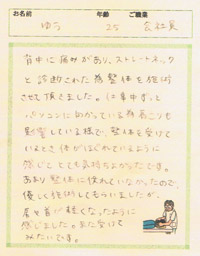 お名前 年齢 ご職業
ゆう 25 会社員
背中に痛みがあり、ストレートネック
と診断された為整体を施術
させて頂きました。仕事中ずっと
パソコンに向かっている為肩こりも
影響している様で、整体を受けて
いるとき体がほぐれているように
感じとても気持ちよかったです。
あまり整体に慣れていなかったので、
優しく施術してもらいましたが、
肩も首が軽くなったように
感じました。また受けて
みたいです。